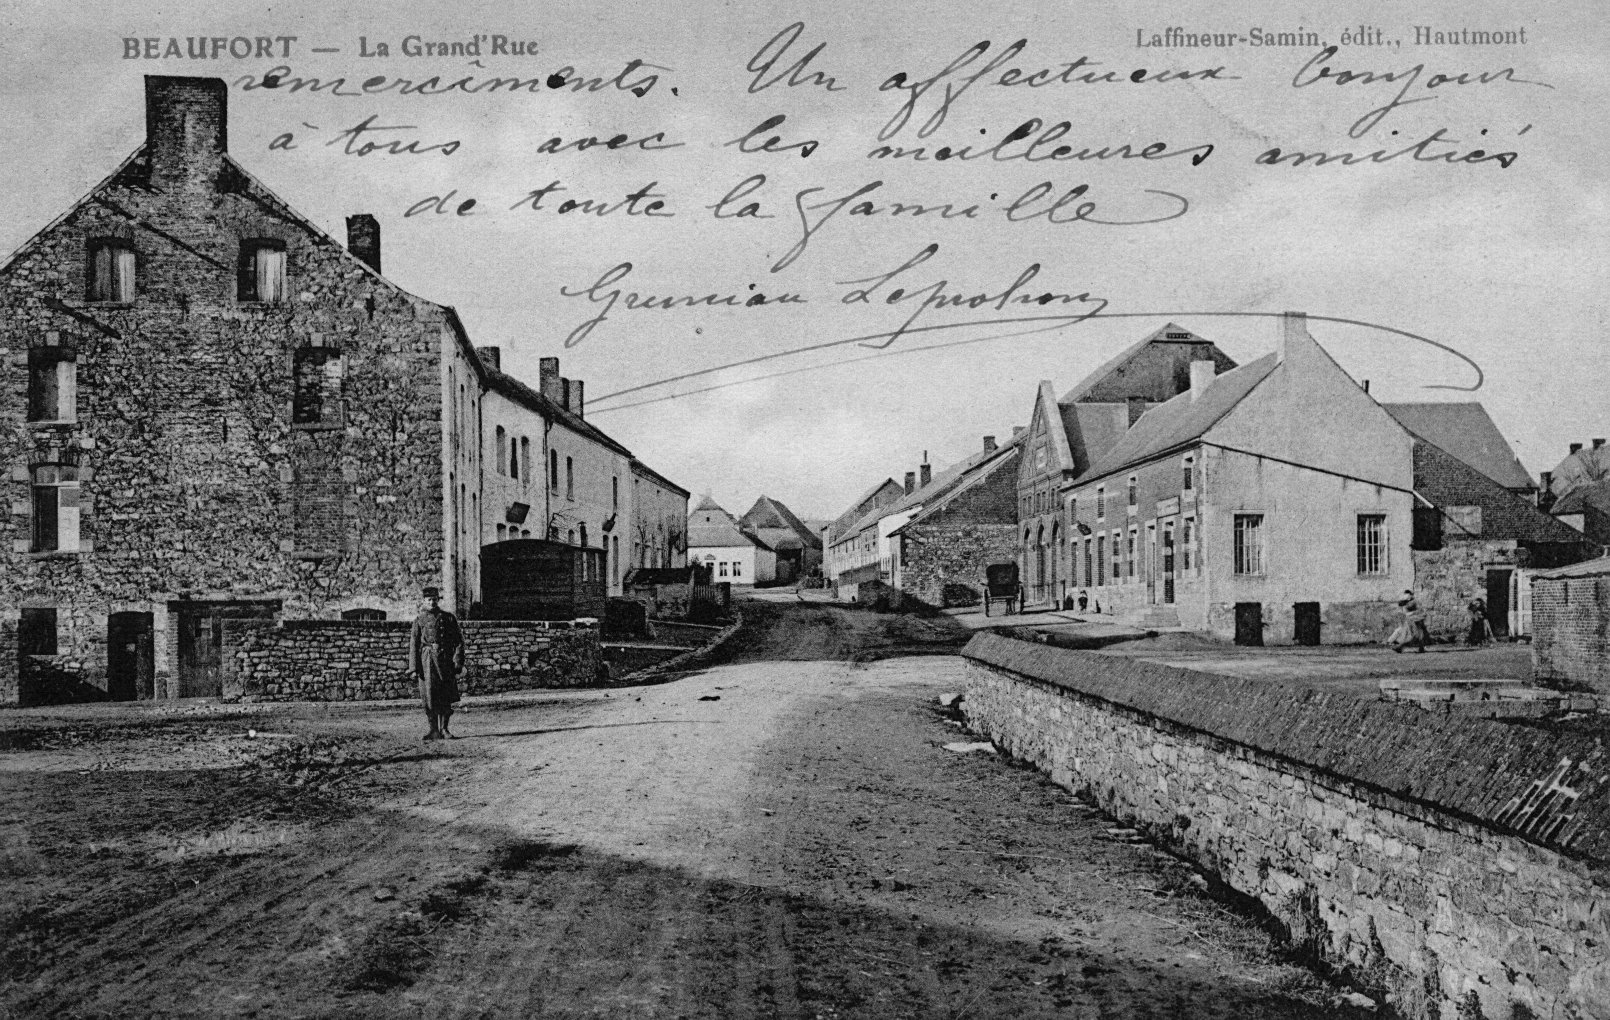 BEAUFORT — La Grand'Rue
Laffineur-Samin, édit., Hautmont
remercîments. Un affectueux bonjour
à tous avec les meilleures amitiés
de toute la famille